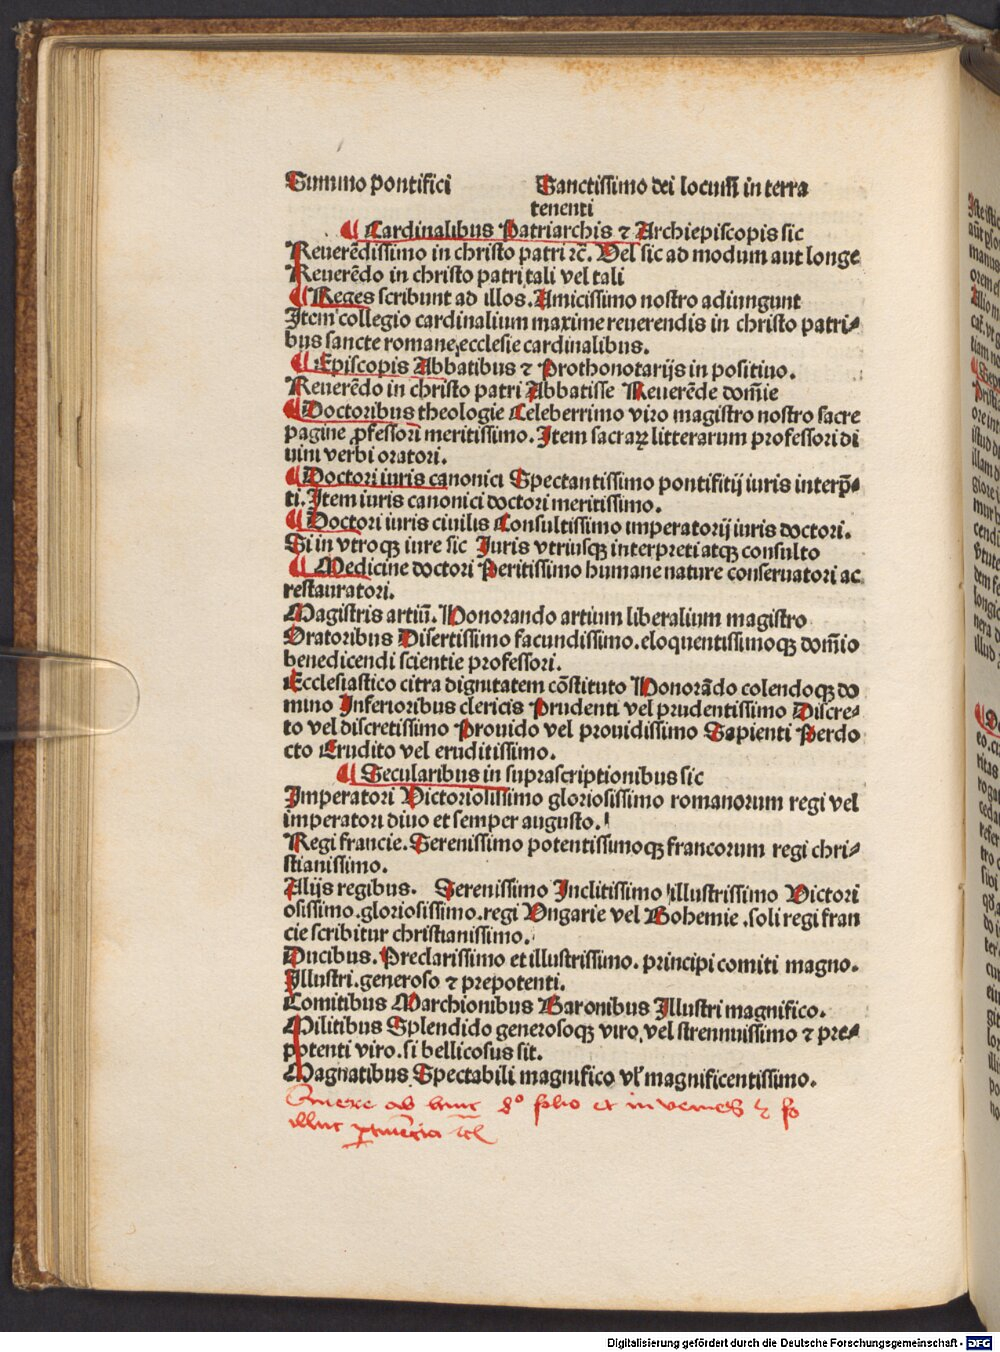 Summo pontifici Sanctissimo dei locum in terra
tenenti
¶ Cardinalibus Patriarchis ⁊ Archiepiscopis sic
Reuerēdissimo in christo patri ⁊c̄. Vel sic ad modum aut longe
Reuerēdo in christo patri tali vel tali
¶ Reges scribunt ad illos. Amicissimo nostro adiungunt
Item collegio cardinalium maxime reuerendis in christo patri⸗
bus sancte romane ecclesie cardinalibus.
¶ Episcopis Abbatibus ⁊ Prothonotarijs in positiuo.
Reuerēdo in christo patri Abbatisse Reuerēde dom̄ie
¶ Doctoribus theologie Celeberrimo viro magistro nostro sacre
pagine ꝓfessori meritissimo. Item sacraꝝ litterarum professori di
uini verbi oratori.
¶ Doctori iuris canonici Spectantissimo pontifitij iuris interp̄⸗
ti. Item iuris canonici doctori meritissimo.
¶ Doctori iuris ciuilis Consultissimo imperatorij iuris doctori.
Si in vtroqꝫ iure sic Iuris vtriusqꝫ interpreti atqꝫ consulto
¶ Medicine doctori Peritissimo humane nature conseruatori ac
restauratori.
Magistris artiū. Honorando artium liberalium magistro
Oratoribus Disertissimo facundissimo. eloquentissimoqꝫ dom̄io
benedicendi scientie professori.
Ecclesiastico citra dignitatem cōstituto Honorādo colendoqꝫ do
mino Inferioribus clericis Prudenti vel prudentissimo Discre⸗
to vel discretissimo Prouido vel prouidissimo Sapienti Perdo
cto Erudito vel eruditissimo.
¶ Secularibus in suprascriptionibus sic
Imperatori Victoriosissimo gloriosissimo romanorum regi vel
imperatori diuo et semper augusto.
Regi francie. Serenissimo potentissimoqꝫ francorum regi chri⸗
stianissimo.
Alijs regibus. Serenissimo Inclitissimo illustrissimo Victori
osissimo. gloriosissimo. regi Vngarie vel Bohemie. soli regi fran
cie scribitur christianissimo.
Ducibus. Preclarissimo et illustrissimo. principi comiti magno.
Illustri. generoso ⁊ prepotenti.
Comitibus Marchionibus Baronibus Illustri magnifico.
Militibus Splendido generosoqꝫ viro, vel strennuissimo ⁊ pre⸗
potenti viro. si bellicosus sit.
Magnatibus Spectabili magnifico vl̓ magnificentissimo.
Quere ab hinc folio et invenies